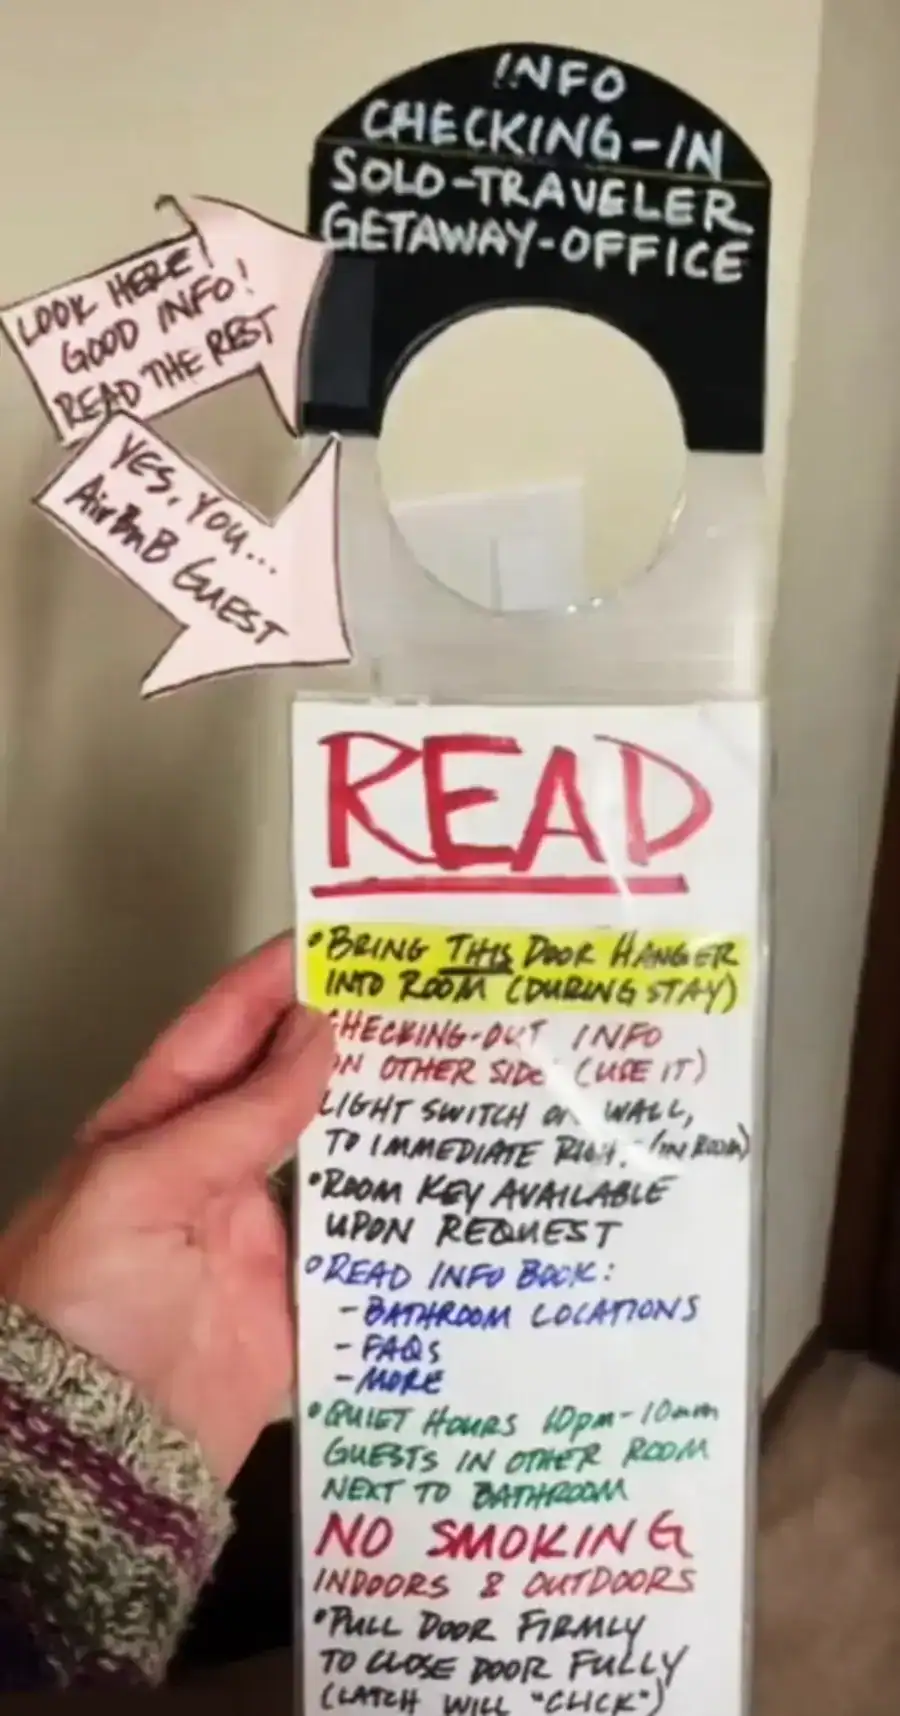 INFO
CHECKING-IN
SOLO-TRAVELER
GETAWAY-OFFICE
LOOK HERE!
GOOD INFO!
READ THE REST
YES, YOU...
AirBnB GUEST
READ
• BRING THIS DOOR HANGER
INTO ROOM (DURING STAY)
CHECKING-OUT INFO
ON OTHER SIDE (USE IT)
LIGHT SWITCH ON WALL,
TO IMMEDIATE RIGHT (IN ROOM)
• ROOM KEY AVAILABLE
UPON REQUEST
• READ INFO BOOK:
- BATHROOM LOCATIONS
- FAQs
- MORE
• QUIET HOURS 10pm-10am
GUESTS IN OTHER ROOM
NEXT TO BATHROOM
NO SMOKING
INDOORS & OUTDOORS
• PULL DOOR FIRMLY
TO CLOSE DOOR FULLY
(LATCH WILL "CLICK")